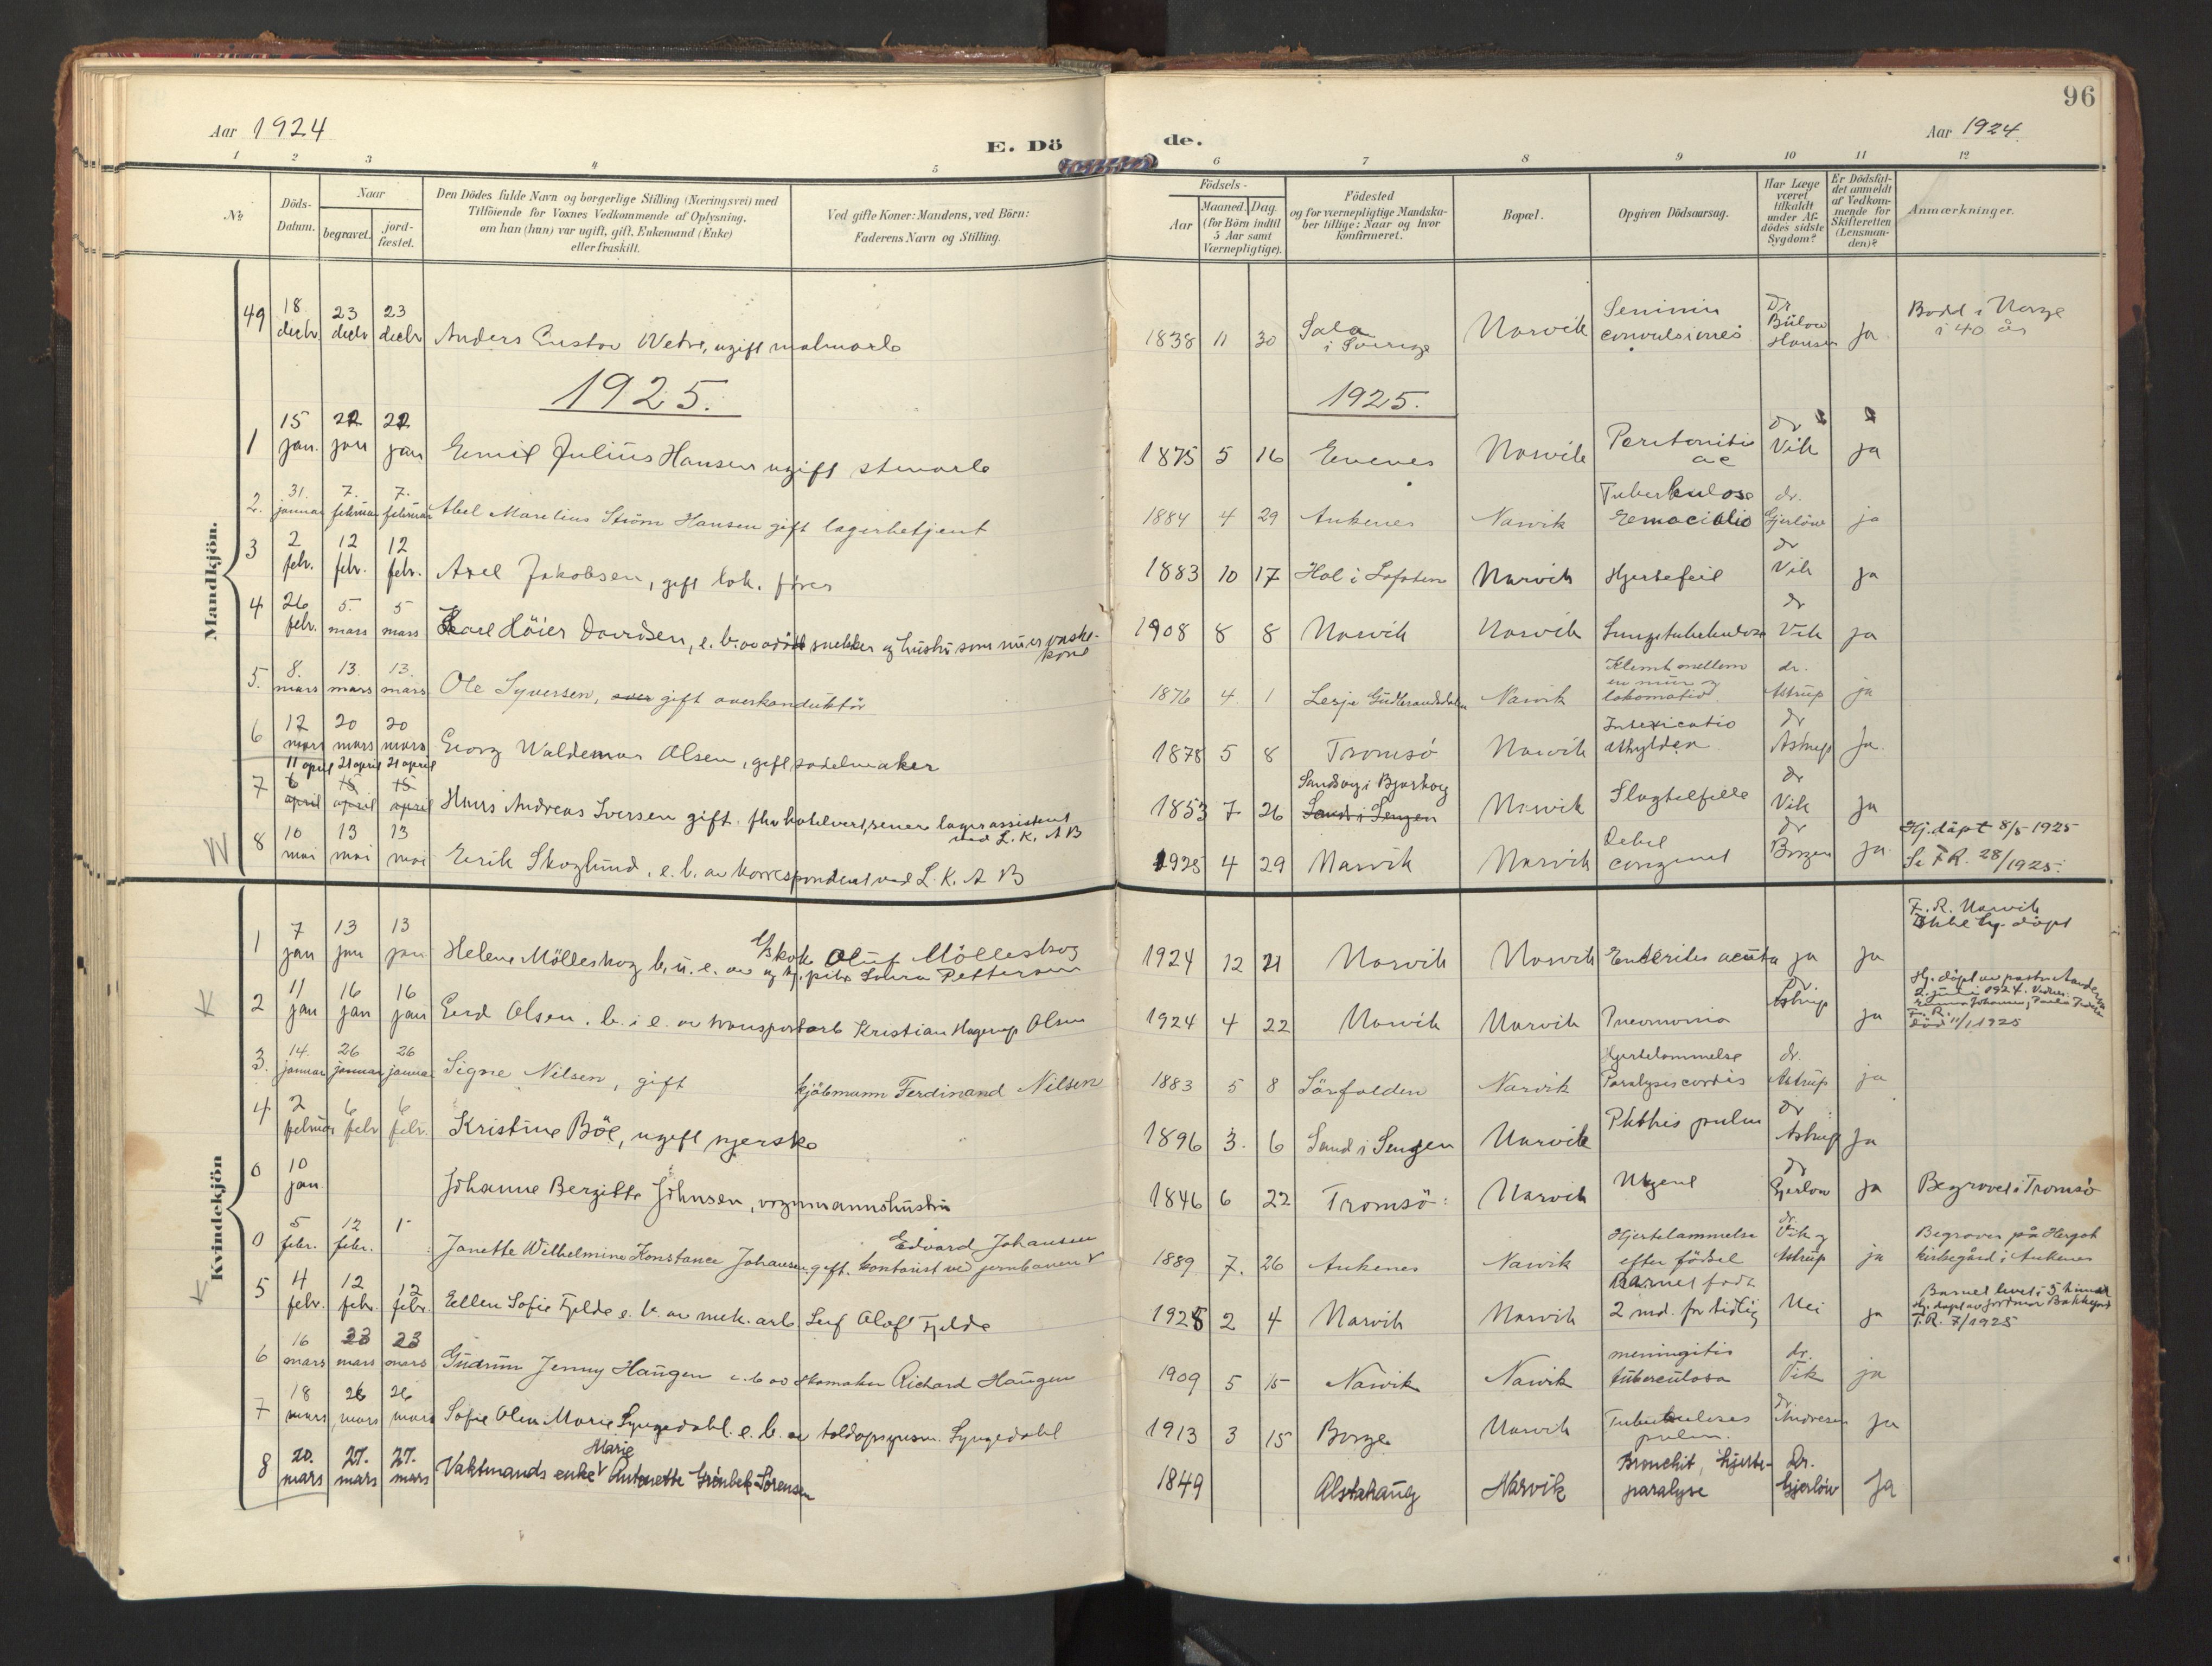 96
Aar 1924
E. Döde.
Aar 1924
1 2 3 4 5 6 7 8 9 10 11 12
№
Döds-
Datum.
Naar
begravet.
jord-
fæstet.
Den Dödes fulde Navn og borgerlige Stilling (Næringsvei) med
Tilföiende for Voxnes Vedkommende af Oplysning,
om han (hun) var ugift, gift, Enkemand (Enke)
eller fraskilt.
Ved gifte Koner: Mandens, ved Börn:
Faderens Navn og Stilling.
Födsels-
Aar
Maaned. Dag
(for Börn indtil
5 Aar samt
Værnepligtige).
Födested
og for værnepligtige Mandska-
ber tillige: Naar og hvor
Konfirmeret.
Bopæl.
Opgiven Dödsaarsag.
Har Læge
været
tilkaldt
under Af-
dödes sidste
Sygdom?
Er Dödsfal-
det anmeldt
af Vedkom-
mende for
Skifteretten
(Lensman-
den)?
Anmærkninger.
Mandkjön.
49 18 decbr 23 decbr 23 decbr Anders Gustav Wetre, ugift malmarb 1838 11 30 Sala i Sverige Narvik Senium convulsiones Dr Bülow Hansen ja Bodd i Norge i 40 år
1925. 1925.
1 15 jan. 22 jan 22 jan Emil Julius Hansen ugift stuarb 1875 5 16 Evenes Narvik Peritonitis ac dr Vik ja
2. 31. januar 7. februar 7. februar Abel Marelius Ström Hansen gift lagerbetjent 1884 4 29 Ankenes Narvik Tuberkulose Emaciatio dr. Gjerlöw ja
3 2 febr. 12 febr. 12 febr. Axel Jakobsen, gift lok. förer 1883 10 17 Hol i Lofoten Narvik Hjertefeil dr Vik ja
4 26 febr. 5. mars 5 mars Karl Höier Davidsen, e. b. av död snekker og hustru som nu er vaske-
kone 1908 8 8 Narvik Narvik Lungetuberkulose dr Vik ja
5. 8. mars 13 mars 13. mars Ole Syversen, gift overkonduktör 1876 4. 1 Lesje Gudbrandsdalen Narvik Klemt mellem en mur og lokomotiv dr. Astrup ja
6 12 mars 20 mars 20 mars Georg Waldemar Olsen, gift sadelmaker 1878 5 8 Tromsö Narvik Intoxicatio dr Astrup Ja.
7 11 april 21 april 21 april 6 april 15 april 15 april Hans Andreas Iversen gift. fhv hotelvert, senere lagerassistent
ved L. K. A B 1853 7 26 Sandvog i Bjarkøy Sand i Senjen Narvik Slagtilfelle dr Vik ja
8 10 mai 13 mai 13 mai Erik Skoglund, e. b. av korrespondent ved L. K. A B 1925 4 29 Narvik Narvik Debil congenit dr Borgen ja. Hj. döpt 8/5 1925
Se F R. 28/1925.
Kvindekjön
1 7 jan 13 jan 13 jan Helene Mölleskog b. u. e. av u/skok Oluf Mölleskog
og hj. pike Laura Pettersen 1924 12 21 Narvik Narvik Enterites acuta ja ja F. R. Narvik
Ikke hj. döpt
2 11 jan 16 jan 16 jan Gerd Olsen. b. i e. av transportarb Kristian Hagerup Olsen 1924 4 22 Narvik Narvik Pneumonia dr Astrup ja Hj. döpt av
2. juni 1924.
F. R.
död 11/1 1925
3. 14. januar 26 januar 26 januar Signe Nilsen, gift kjöbmann Ferdinand Nilsen 1883 5 8 Sörfolden Narvik Hjertelammelse Paralysis cordis dr. Astrup ja
4 2 februar 6 febr 6 febr. Kristine Böe, ugift syerske 1896 3. 6 Sand i Senjen Narvik Phthis pulm dr Astrup Ja
0 10 jan Johanne Bergitte Johnsen, vognmannshustru 1846 6 22 Tromsö Narvik dr Gjerlöw ja Begravet i Tromsö
0 5 febr. 12 febr. Janette Wilhelmine Konstance Johansen. gift. Edvard Johansen
kontorist ved jernbanen 1889 7. 26 Ankenes Narvik Hjertelammelse efter födsel dr. Vik og Astrup ja Begraves på Hergot
kirkegård i Ankenes
5 4 febr. 12 febr. 12 febr. Ellen Sofie Fjelde e. b. av mek. arb Leif Olof Fjelde 1925 2 4 Narvik Narvik Barnet född 2 md. for tidlig Nei ja Barnet levet i 5 timer
Hj. döpt av jordmor Bakkejord
F. R. 7/1925
6 16 mars 23 mars 23 mars Gudrun Jenny Haugen e. b. av skomaker Richard Haugen 1909 5 15 Narvik Narvik meningitis tuberculosa dr. Vik ja
7 18 mars 26 mars 26 mars Sofie Olea Marie Lyngedahl. e. b. av toldopsynsm. Lyngedahl 1913 3 15 Borge Narvik Tuberkuloses pulm. dr. Andresen Ja
8 20. mars 27. mars 27. mars Vaktmands enke Marie Antonette Grönbek Sörensen 1849 Alstahaug Narvik Bronchit, hjerte-
paralyse Dr. Gjerlöw Ja